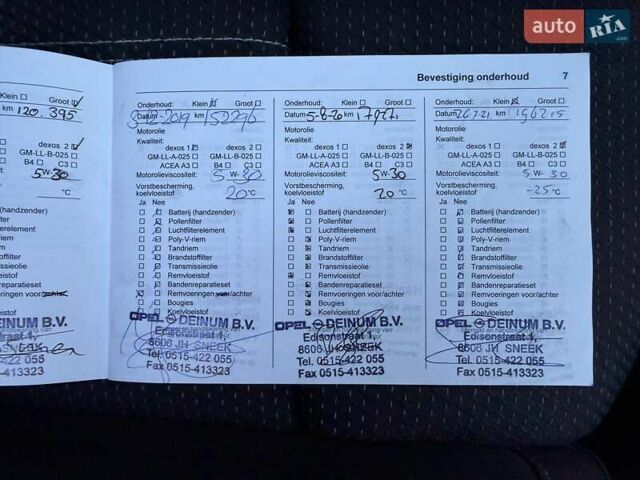 auto RIA.com
Bevestiging onderhoud 7
Klein ☐ Groot ☑
km 120.395
dexos 2 ☑
GM-LL-B-025 ☐
B4 ☐ C3 ☐
5W-30
°C
element
ilter
eolie
of
reparatieset
ingen voor/achter
stof
DEINUM B.V.
nstraat 1,
JH SNEEK
515-422 055
0515-413323
Onderhoud: Klein ☒ Groot ☐
Datum 3-12-2019 km 152296
Motorolie
Kwaliteit:
dexos 1 ☑ dexos 2 ☐
GM-LL-A-025 ☐ GM-LL-B-025 ☐
ACEA A3 ☐ B4 ☐ C3 ☐
Motorolieviscositeit: 5 W- 30
Vorstbescherming,
koelvloeistof 20 °C
Ja Nee
Batterij (handzender)
Pollenfilter
Luchtfilterelement
Poly-V-riem
Tandriem
Brandstoffilter
Transmissieolie
Remvloeistof
Bandenreparatieset
Remvoeringen voor/achter
Bougies
Koelvloeistof
OPEL DEINUM B.V.
Edisonstraat 1,
8606 JH SNEEK
Tel. 0515-422 055
Fax 0515-413323
Onderhoud: Klein ☐ Groot ☐
Datum 5-8-20 km
Motorolie
Kwaliteit:
dexos 1 ☐ dexos 2 ☒
GM-LL-A-025 ☐ GM-LL-B-025 ☐
ACEA A3 ☐ B4 ☐ C3 ☐
Motorolieviscositeit: 5 W- 30
Vorstbescherming,
koelvloeistof 20 °C
Ja Nee
Batterij (handzender)
Pollenfilter
Luchtfilterelement
Poly-V-riem
Tandriem
Brandstoffilter
Transmissieolie
Remvloeistof
Bandenreparatieset
Remvoeringen voor/achter
Bougies
Koelvloeistof
OPEL DEINUM B.V.
Edisonstraat 1,
8606 JH SNEEK
Tel. 0515-422 055
Fax 0515-413323
Onderhoud: Klein ☒ Groot ☐
Datum 26-7-21 km 196215
Motorolie
Kwaliteit:
dexos 1 ☐ dexos 2 ☑
GM-LL-A-025 ☐ GM-LL-B-025 ☐
ACEA A3 ☐ B4 ☐ C3 ☐
Motorolieviscositeit: 5 W- 30
Vorstbescherming,
koelvloeistof -25 °C
Ja Nee
Batterij (handzender)
Pollenfilter
Luchtfilterelement
Poly-V-riem
Tandriem
Brandstoffilter
Transmissieolie
Remvloeistof
Bandenreparatieset
Remvoeringen voor/achter
Bougies
Koelvloeistof
OPEL DEINUM B.V.
Edisonstraat 1,
8606 JH SNEEK
Tel. 0515-422 055
Fax 0515-413323